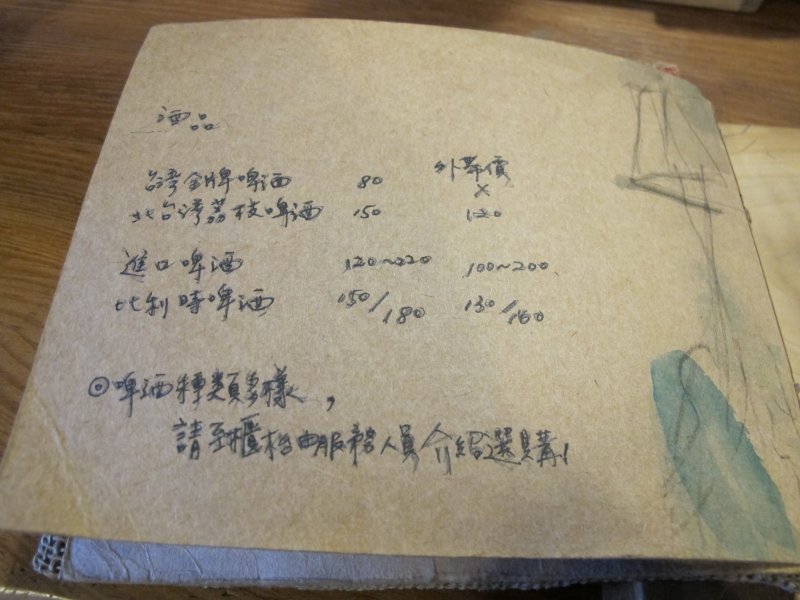 酒品
外帶價
台灣金牌啤酒 80 X
北台灣荔枝啤酒 150 120
進口啤酒 120~220 100~200
比利時啤酒 150/180 130/160
◎啤酒種類多樣,
請至櫃枱由服務人員介紹選購!